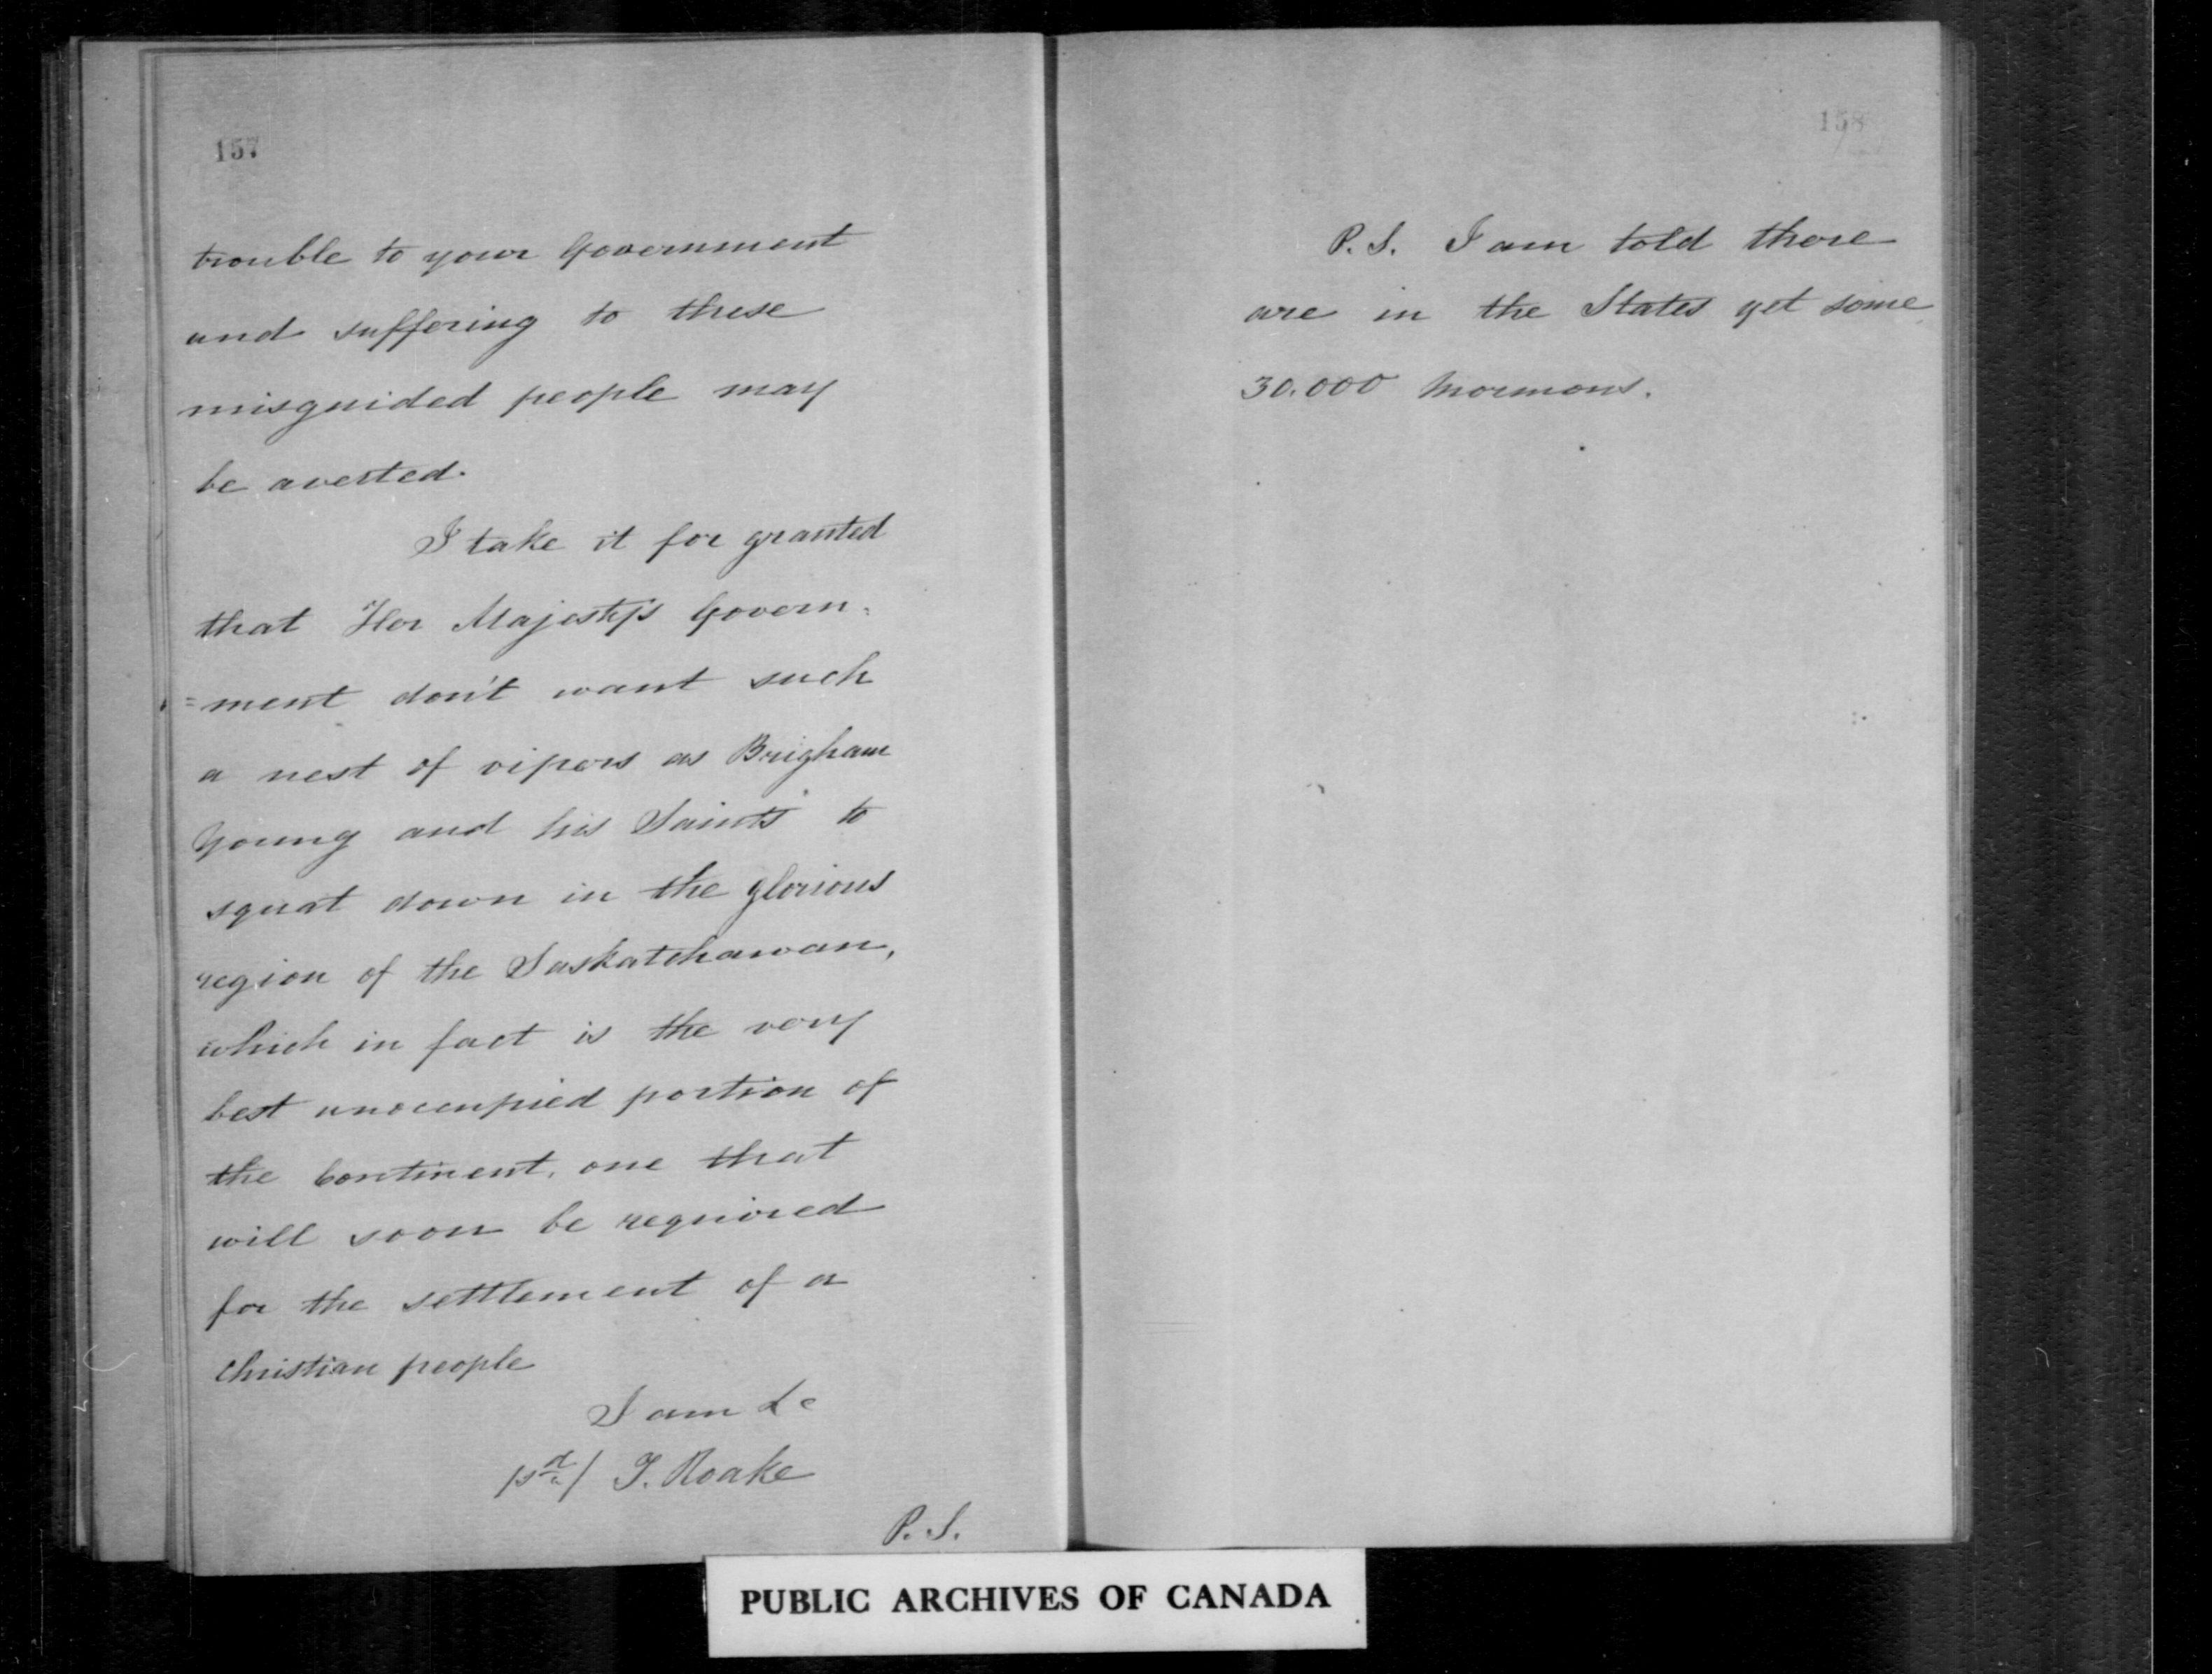 157
trouble to your Government
and suffering to these
misguided people may
be averted.
I take it for granted
that Her Majesty's Govern=
=ment don't want such
a nest of vipers as Brigham
Young and his Saints to
squat down in the glorious
region of the Saskatchawan,
which in fact is the very
best unoccupied portion of
the Continent, one that
will soon be required
for the settlement of a
Christian people
I am &c
(sd) J. Roake
P.S.
158
P.S. I am told there
are in the States yet some
30.000 Mormons.
PUBLIC ARCHIVES OF CANADA